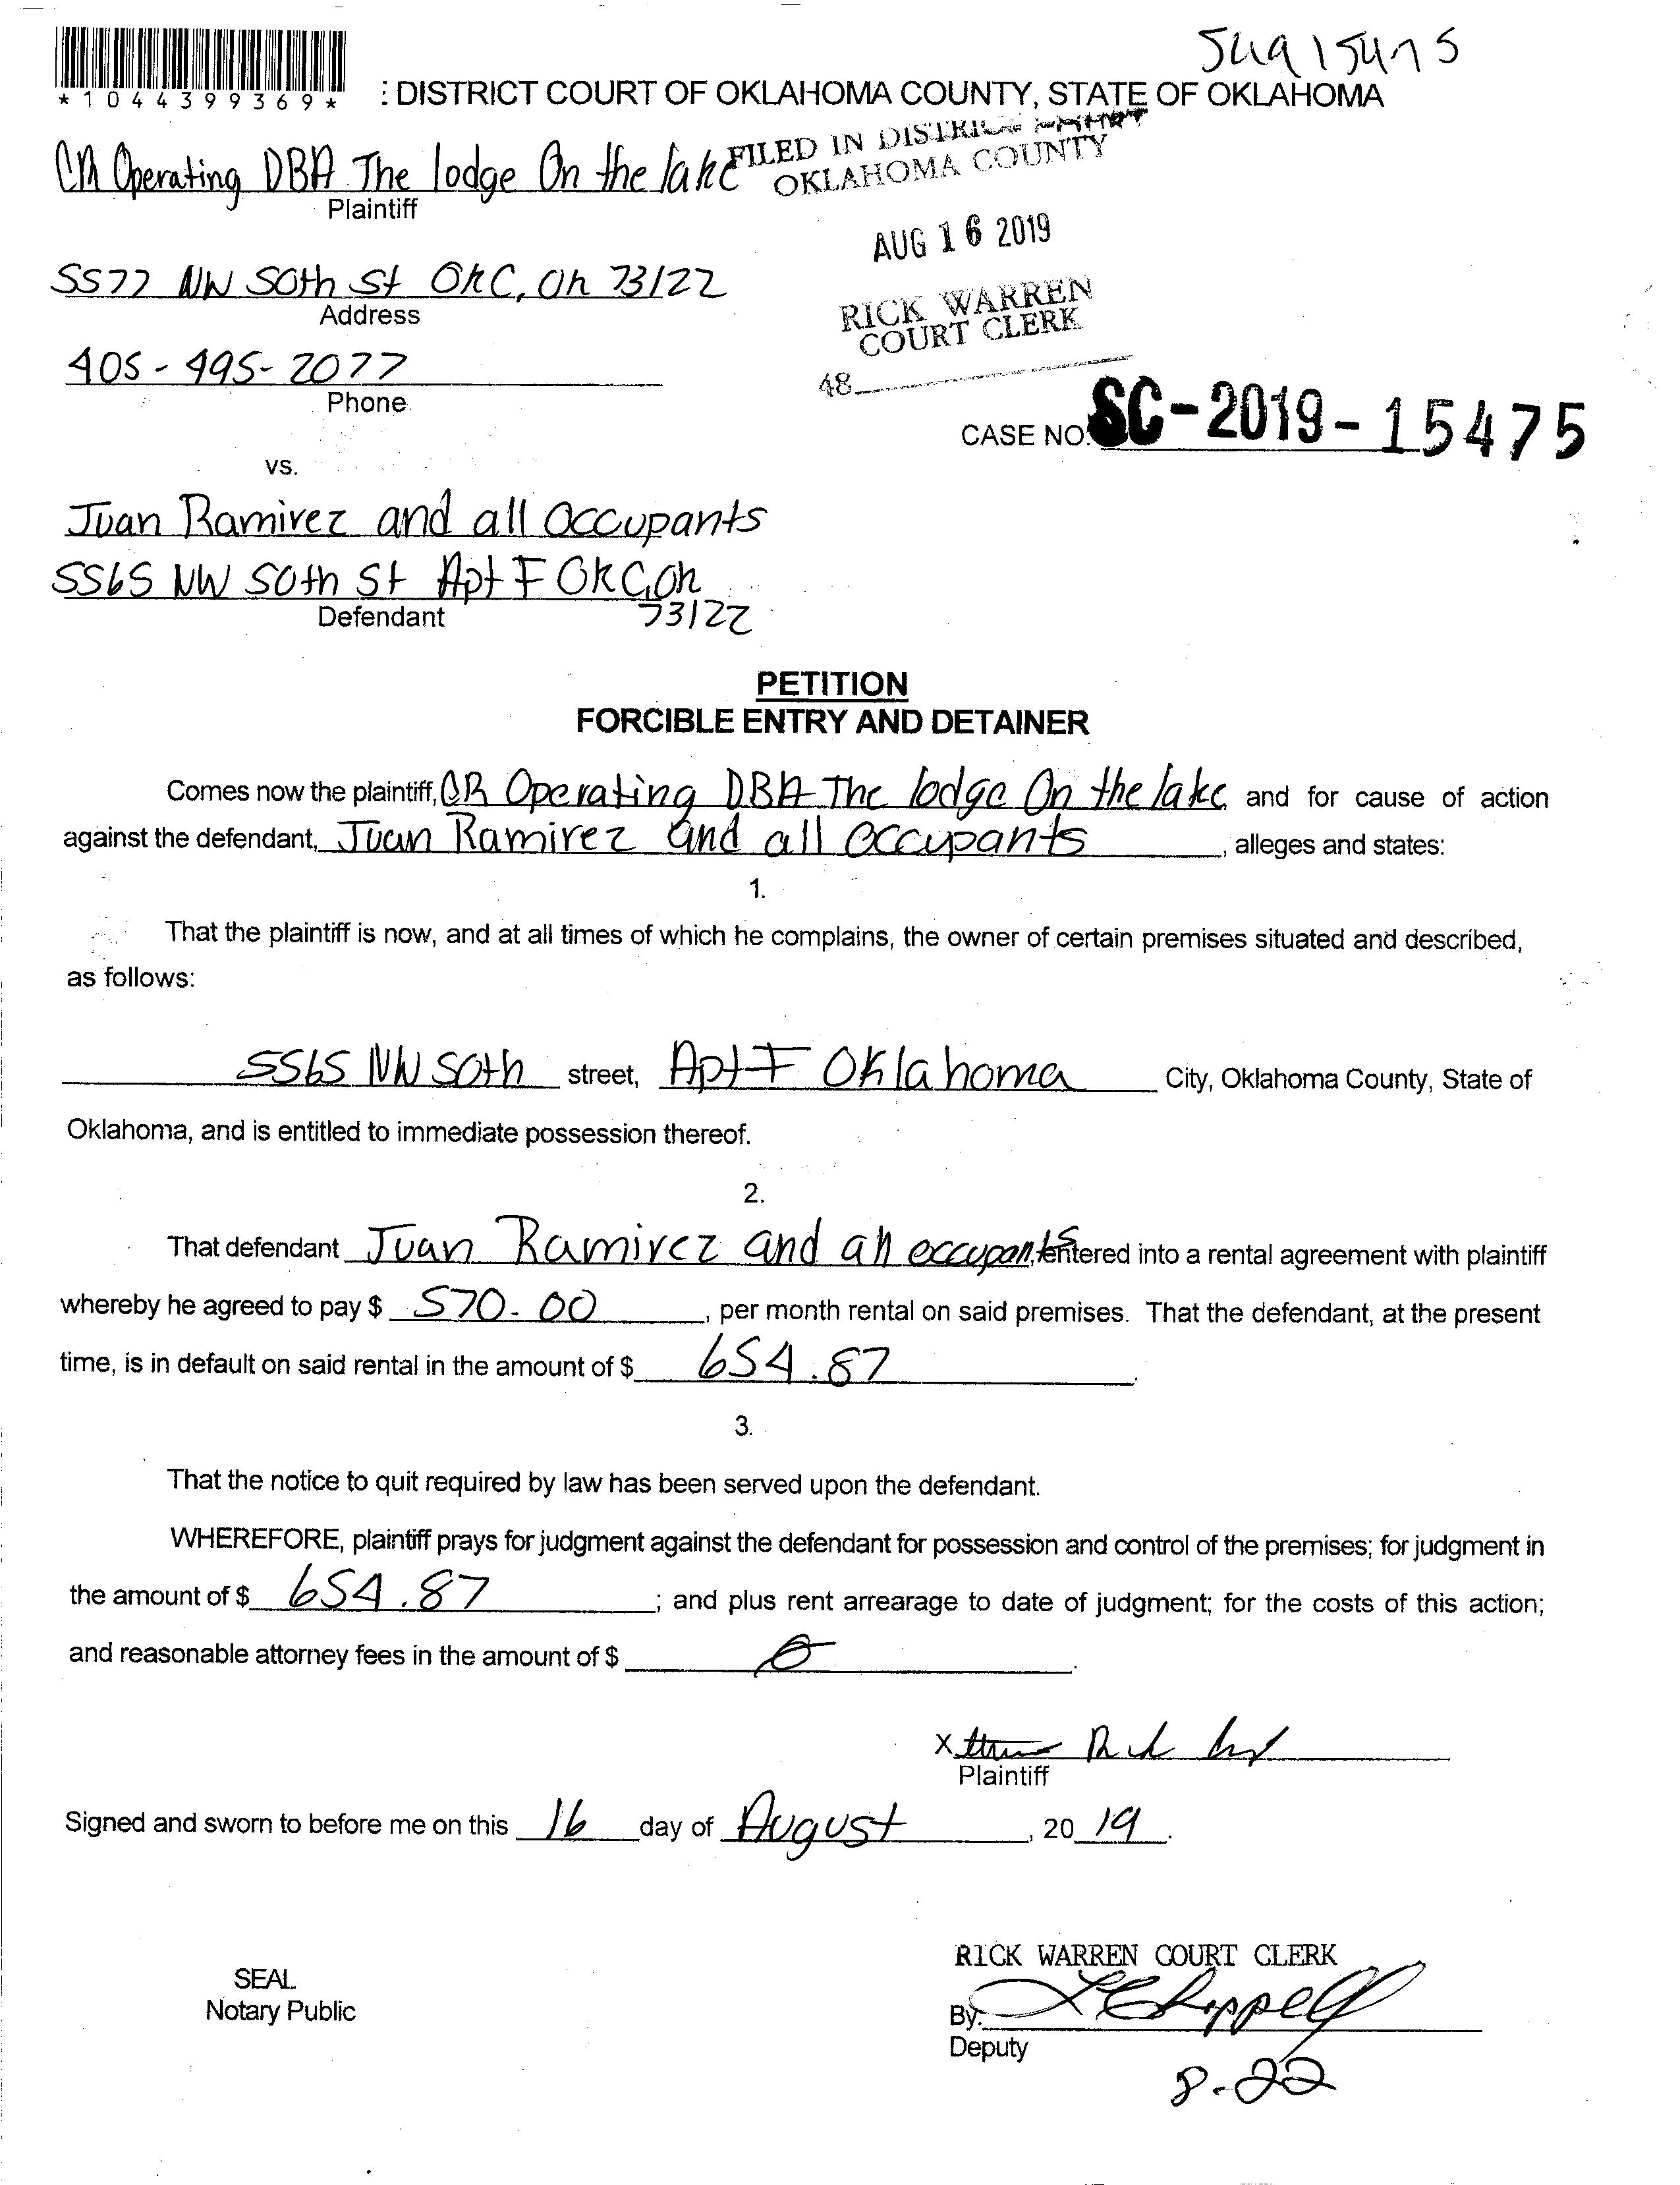 *1044399369*
: DISTRICT COURT OF OKLAHOMA COUNTY, STATE OF OKLAHOMA
Operating DBA The lodge On the lake
Plaintiff
FILED IN DISTRICT COURT
OKLAHOMA COUNTY
AUG 16 2019
RICK WARREN
COURT CLERK
48
5577 NW 50th St OKC, Ok 73122
Address
405-495-2077
Phone
CASE NO. SC-2019-15475
vs.
Juan Ramirez and all occupants
5565 NW 50th St Apt F OKC, Ok
73122
Defendant
PETITION
FORCIBLE ENTRY AND DETAINER
Comes now the plaintiff, Operating DBA The lodge On the lake and for cause of action
against the defendant, Juan Ramirez and all occupants, alleges and states:
1.
That the plaintiff is now, and at all times of which he complains, the owner of certain premises situated and described,
as follows:
5565 NW 50th street, Apt F Oklahoma City, Oklahoma County, State of
Oklahoma, and is entitled to immediate possession thereof.
2.
That defendant Juan Ramirez and all occupants, entered into a rental agreement with plaintiff
whereby he agreed to pay $ 570.00, per month rental on said premises. That the defendant, at the present
time, is in default on said rental in the amount of $ 654.87.
3.
That the notice to quit required by law has been served upon the defendant.
WHEREFORE, plaintiff prays for judgment against the defendant for possession and control of the premises; for judgment in
the amount of $ 654.87; and plus rent arrearage to date of judgment; for the costs of this action;
and reasonable attorney fees in the amount of $ 0.
X
Plaintiff
Signed and sworn to before me on this 16 day of August, 2019.
SEAL
Notary Public
RICK WARREN COURT CLERK
By:
Deputy
8-22